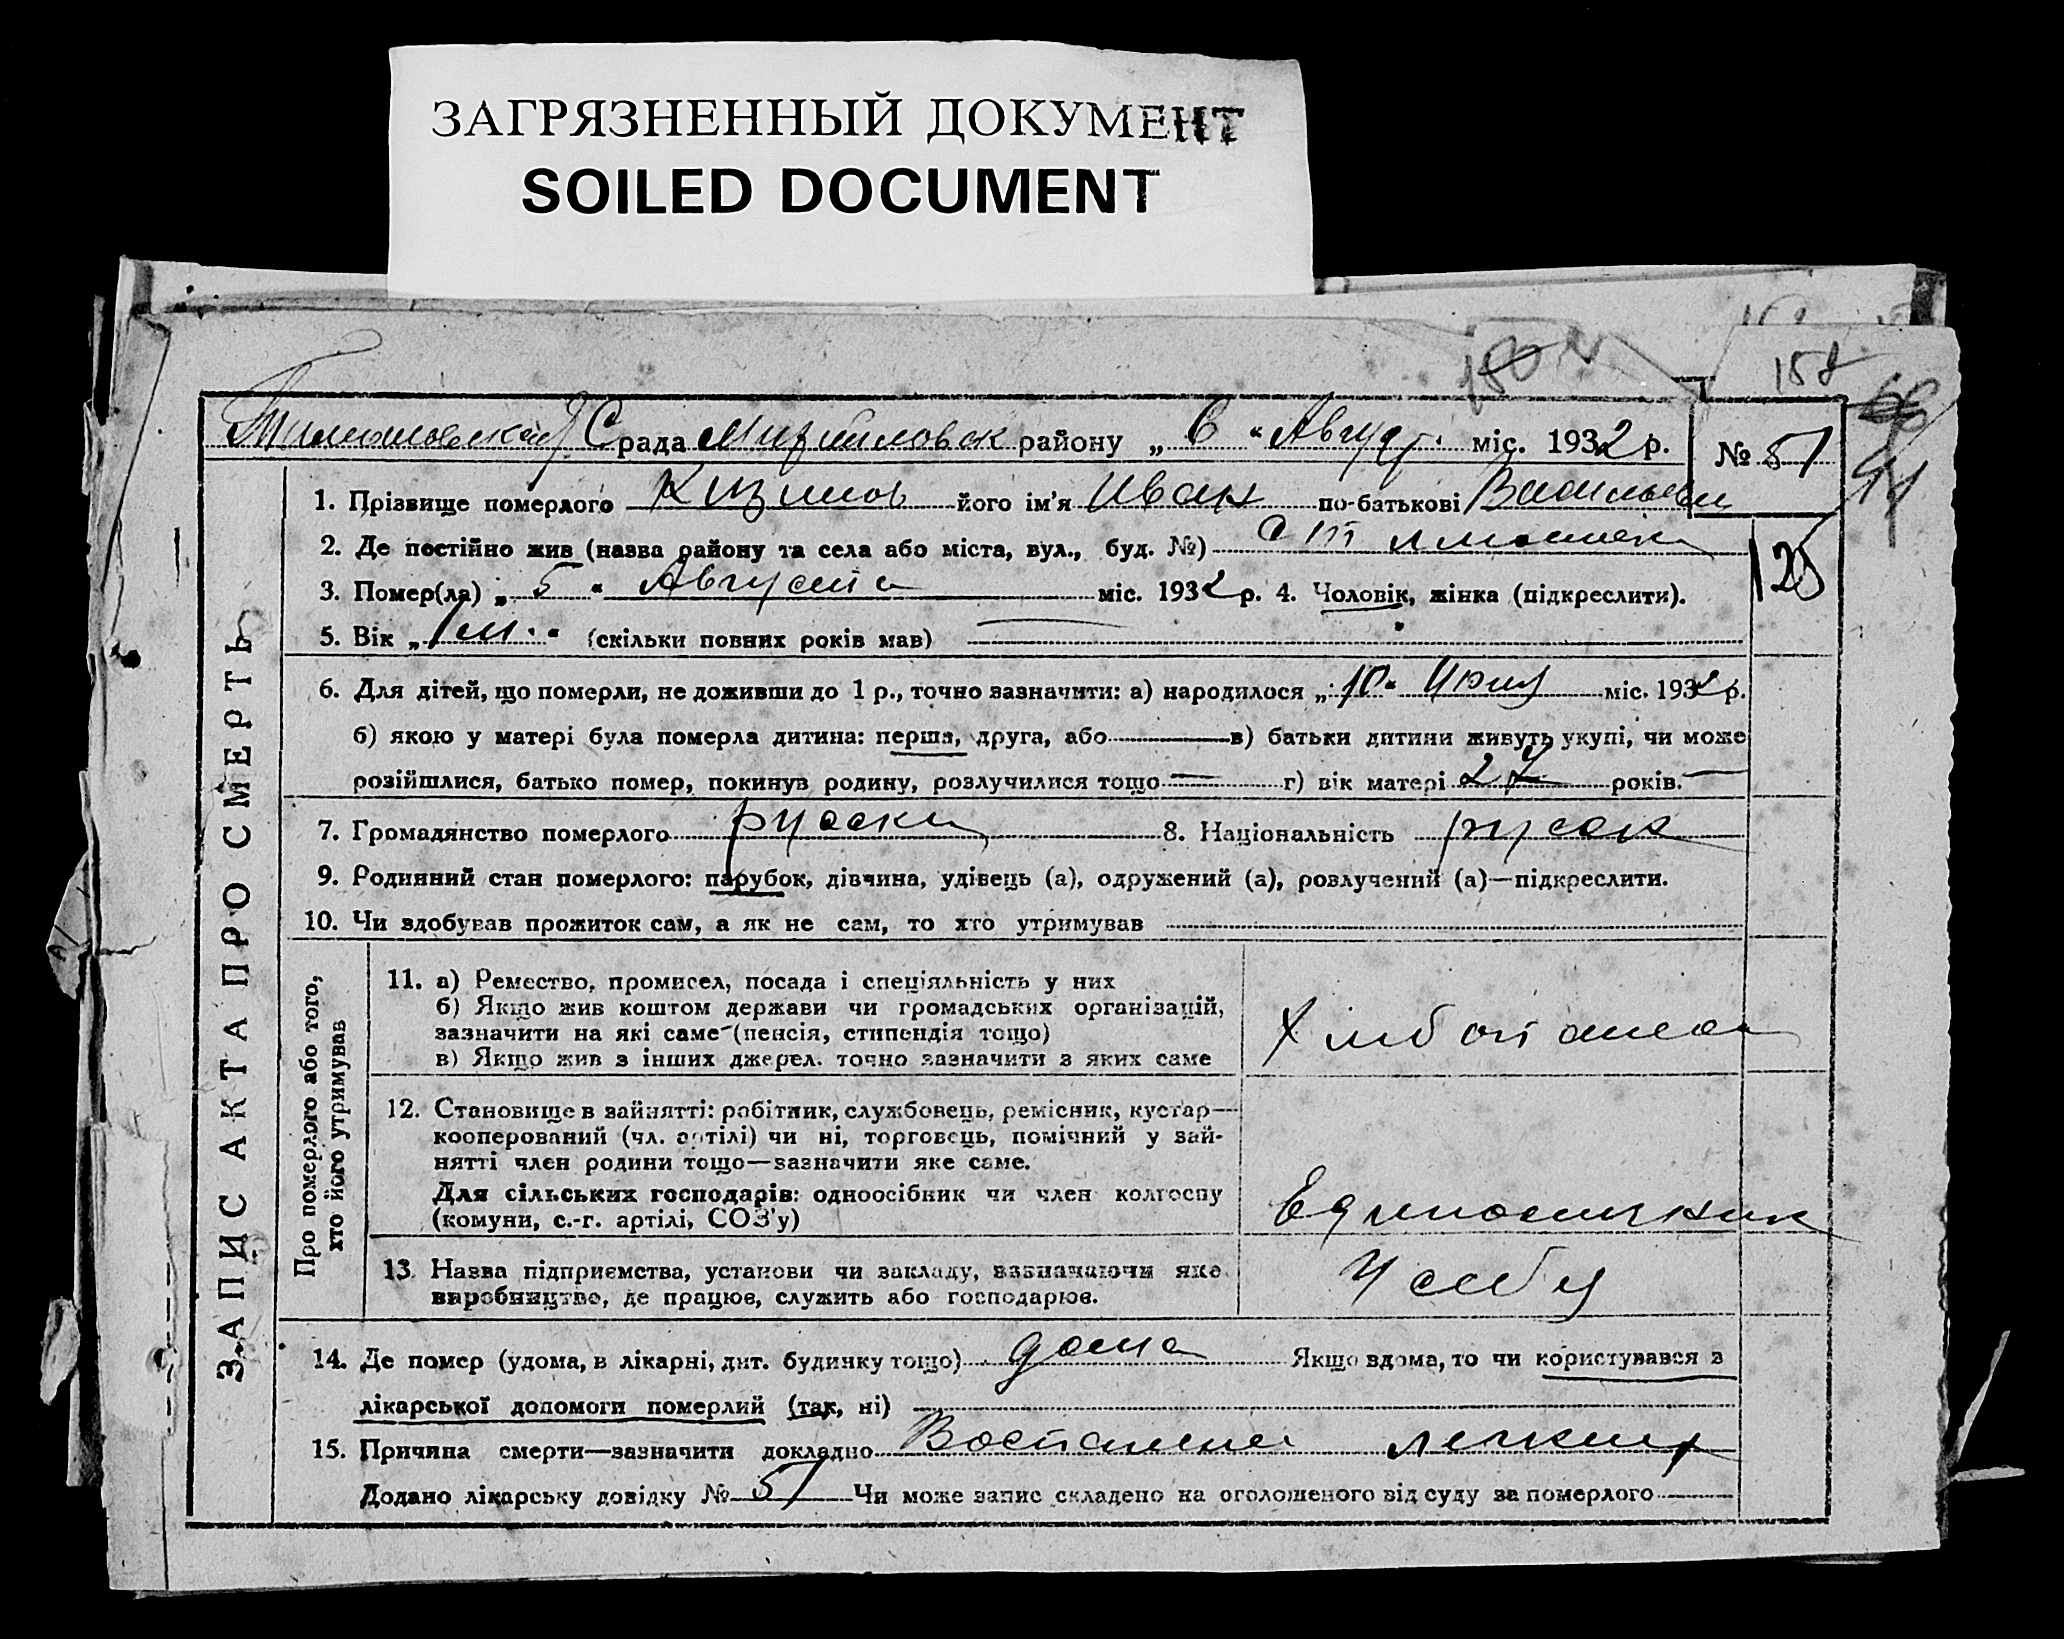 ЗАГРЯЗНЕННЫЙ ДОКУМЕНТ
SOILED DOCUMENT
158
Срада района „ 6 “ Август. міс. 1932 р. № 51
1. Прізвище померлого його ім'я Иван по-батькові
2. Де постійно жив (назва району та села або міста, вул., буд. №)
125
3. Помер(ла) „ 5 “ Августа міс. 1932 р. 4. Чоловік, жінка (підкреслити).
5. Вік „ 1 м. “ (скільки повних років мав) —
6. Для дітей, що померли, не доживши до 1 р., точно зазначити: а) народилося „ 10 “ міс. 1932 р.
б) якою у матері була померла дитина: перша, друга, або — в) батьки дитини живуть укупі, чи може
розійшлися, батько помер, покинув родину, розлучилися тощо — г) вік матері 27 років. —
7. Громадянство померлого руски 8. Національність русак
9. Родинний стан померлого: парубок, дівчина, удівець (а), одружений (а), розлучений (а)—підкреслити.
10. Чи здобував прожиток сам, а як не сам, то хто утримував
ЗАПИС АКТА ПРО СМЕРТЬ
Про померлого або того,
хто його утримував
11. а) Ремество, промисел, посада і спеціяльність у них
б) Якщо жив коштом держави чи громадських організацій,
зазначити на які саме (пенсія, стипендія тощо)
в) Якщо жив з інших джерел. точно зазначити з яких саме
12. Становище в зайнятті: робітник, службовець, ремісник, кустар—
кооперований (чл. артілі) чи ні, торговець, помічний у зай-
нятті член родини тощо—зазначити яке саме.
Для сільських господарів: одноосібник чи член колгоспу
(комуни, с.-г. артілі, СОЗ'у)
13. Назва підприємства, установи чи закладу, зазначаючи яке
виробництво, де працює, служить або господарює.
У себя
14. Де помер (удома, в лікарні, дит. будинку тощо) дома Якщо вдома, то чи користувався з
лікарської допомоги померлий (так, ні)
15. Причина смерти—зазначити докладно Воспаление легких
Додано лікарську довідку № 51 Чи може запис складено на оголошеного від суду за померлого